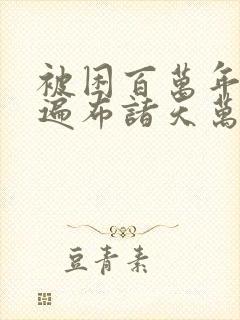 被困百萬年
遍布諸天萬
豆青素